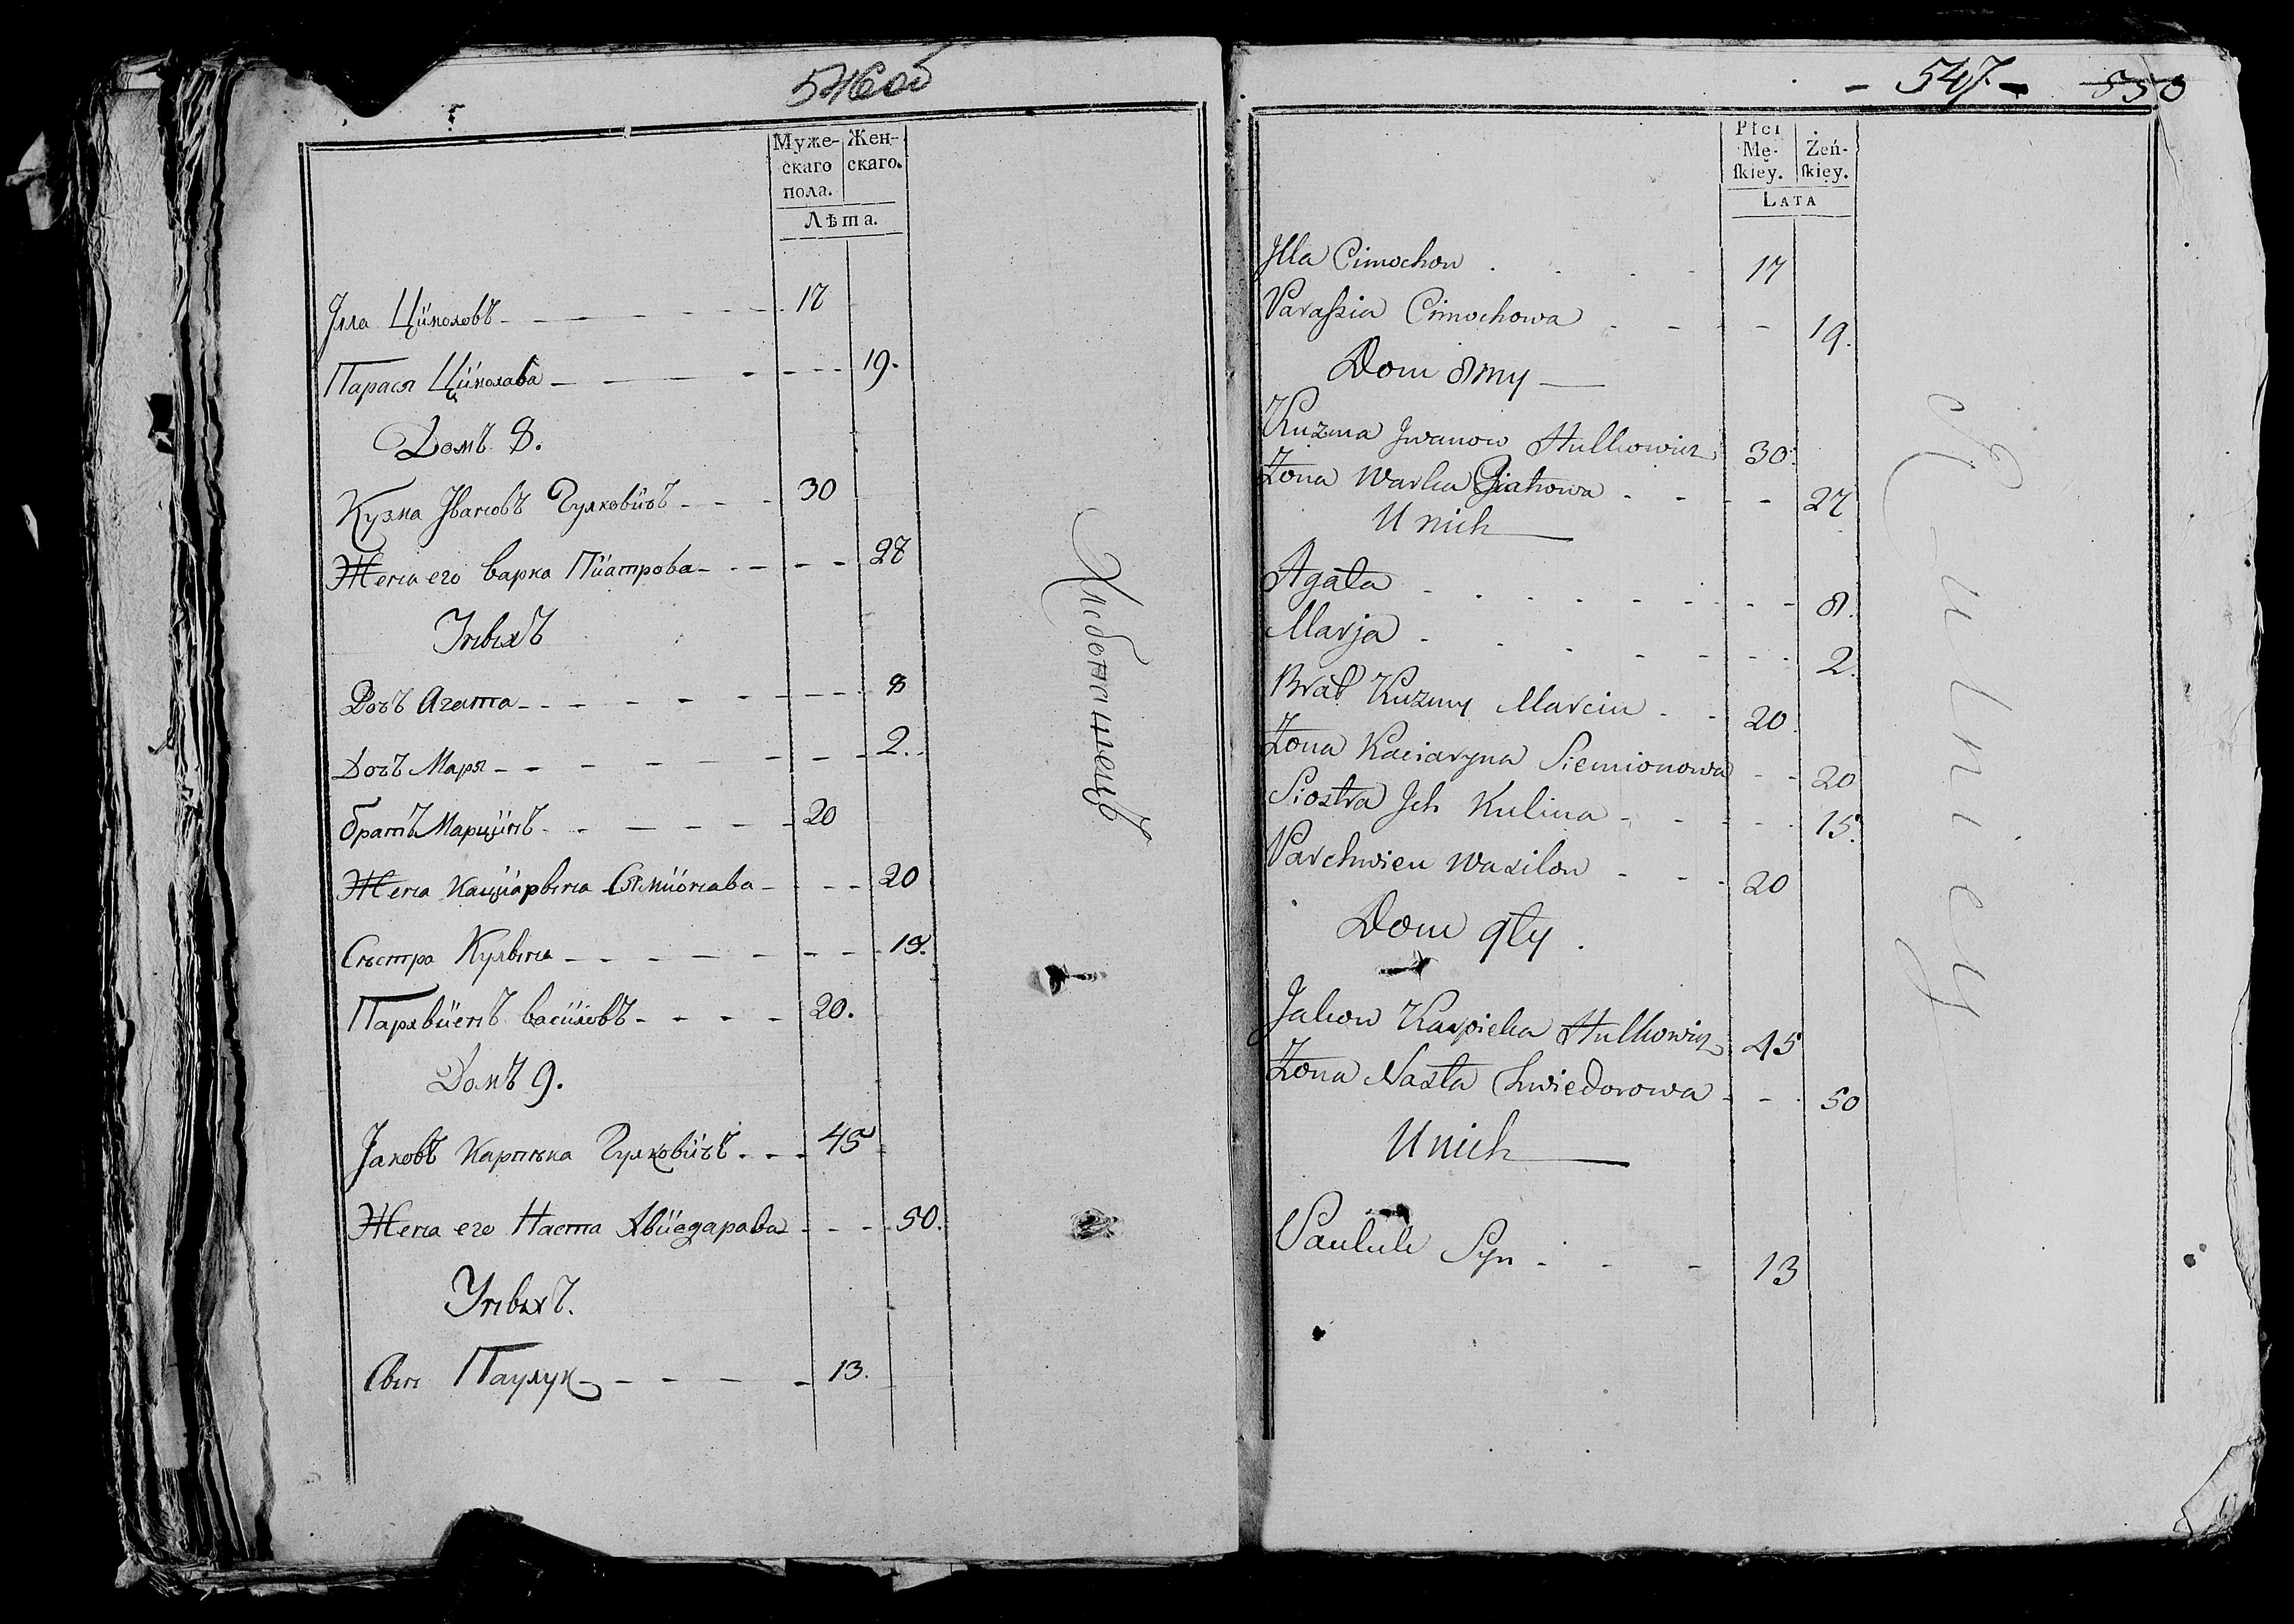 546об
Муже-
скаго
пола.
Жен-
скаго.
Лѣта.
Ілла Цїмоховъ 17
Парася Цїмохава 19.
Домъ 8.
Кузма Івановъ Гулковїчъ 30
Жена его варка Пїатрова 27
Унвіхъ
Дочъ Агата 8
Дочъ Маря 2.
братъ Марцїнъ 20
Жена Кацїарвіна Сямїонава 20
Сѣстра Кулвіна 15.
Пархвїенъ васїловъ 20.
Домъ 9.
Јаковъ Карпѣка Гулковїчъ 45
Жена его Наста Хвїедарава 50.
Унвіхъ.
Свін Паулук 13.
Хлебопашецъ
- 547 - 550
Płci
Mę-
ſkiey.
Żeń-
ſkiey.
LATA
Jlla Cimochow 17
Paraſzia Cimochowa 19.
Dom 8my
Kuzma Jwanow Hulkowicz 30.
Żona Warka Piatrowa 27
U nich
Agata 8.
Marja 2.
Brat Kuzmy Marcin 20.
Żona Kaciaryna Siemionowa 20
Siostra Jch Kulina 15.
Parchwien Wasilow 20
Dom 9ty.
Jakow Karpieka Hulkowicz 45
Żona Nasta Chwiedorowa 50
U nich
Pauluk Syn 13
Rolniey